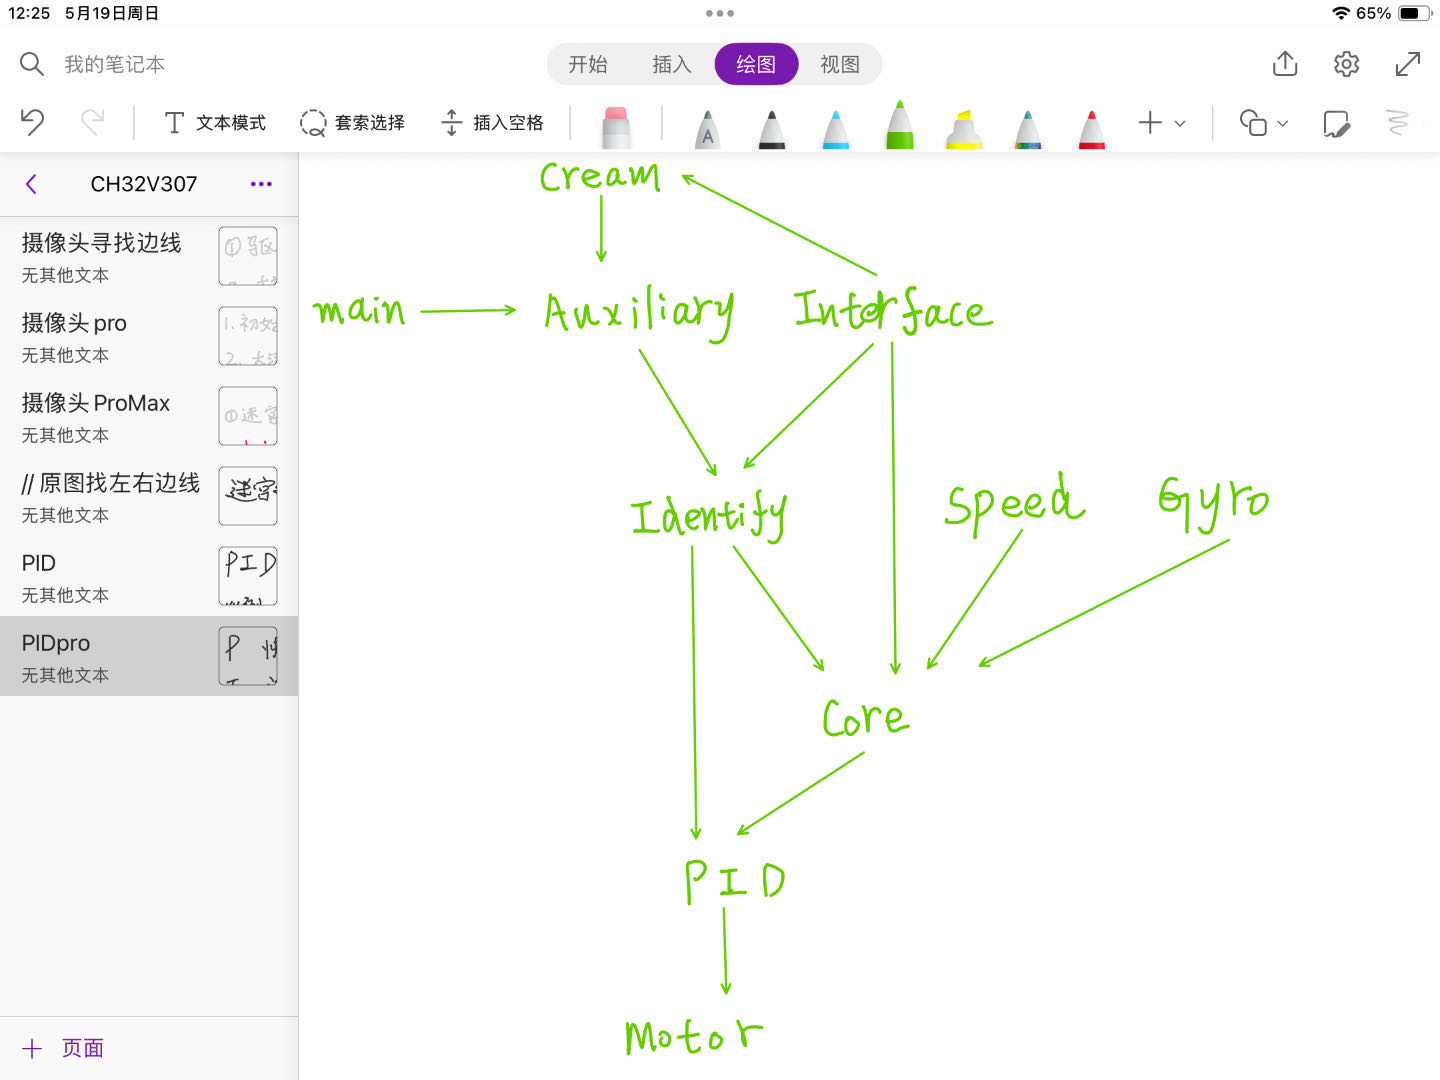 12:25 5月19日周日
65%
我的笔记本
开始 插入 绘图 视图
文本模式 套索选择 插入空格
A
CH32V307
摄像头寻找边线
无其他文本
①驱
摄像头 pro
无其他文本
1.初始
2.
摄像头 ProMax
无其他文本
①迷宫
// 原图找左右边线
无其他文本
迷宫
PID
无其他文本
PID
PIDpro
无其他文本
P
页面
Cream
main Auxiliary Interface
Identify Speed Gyro
Core
PID
Motor